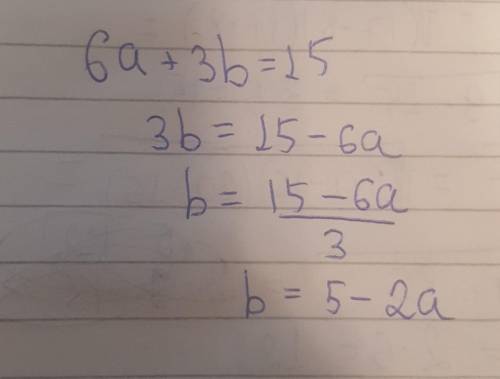 6a + 3b = 15
3b = 15 - 6a
b = 15 - 6a / 3
b = 5 - 2a